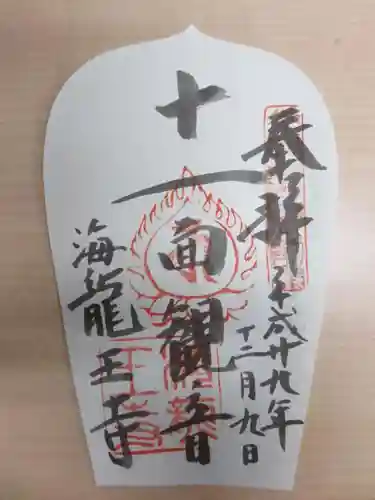 奉拝
平成廿九年
十二月九日
十一面観音
海龍王寺